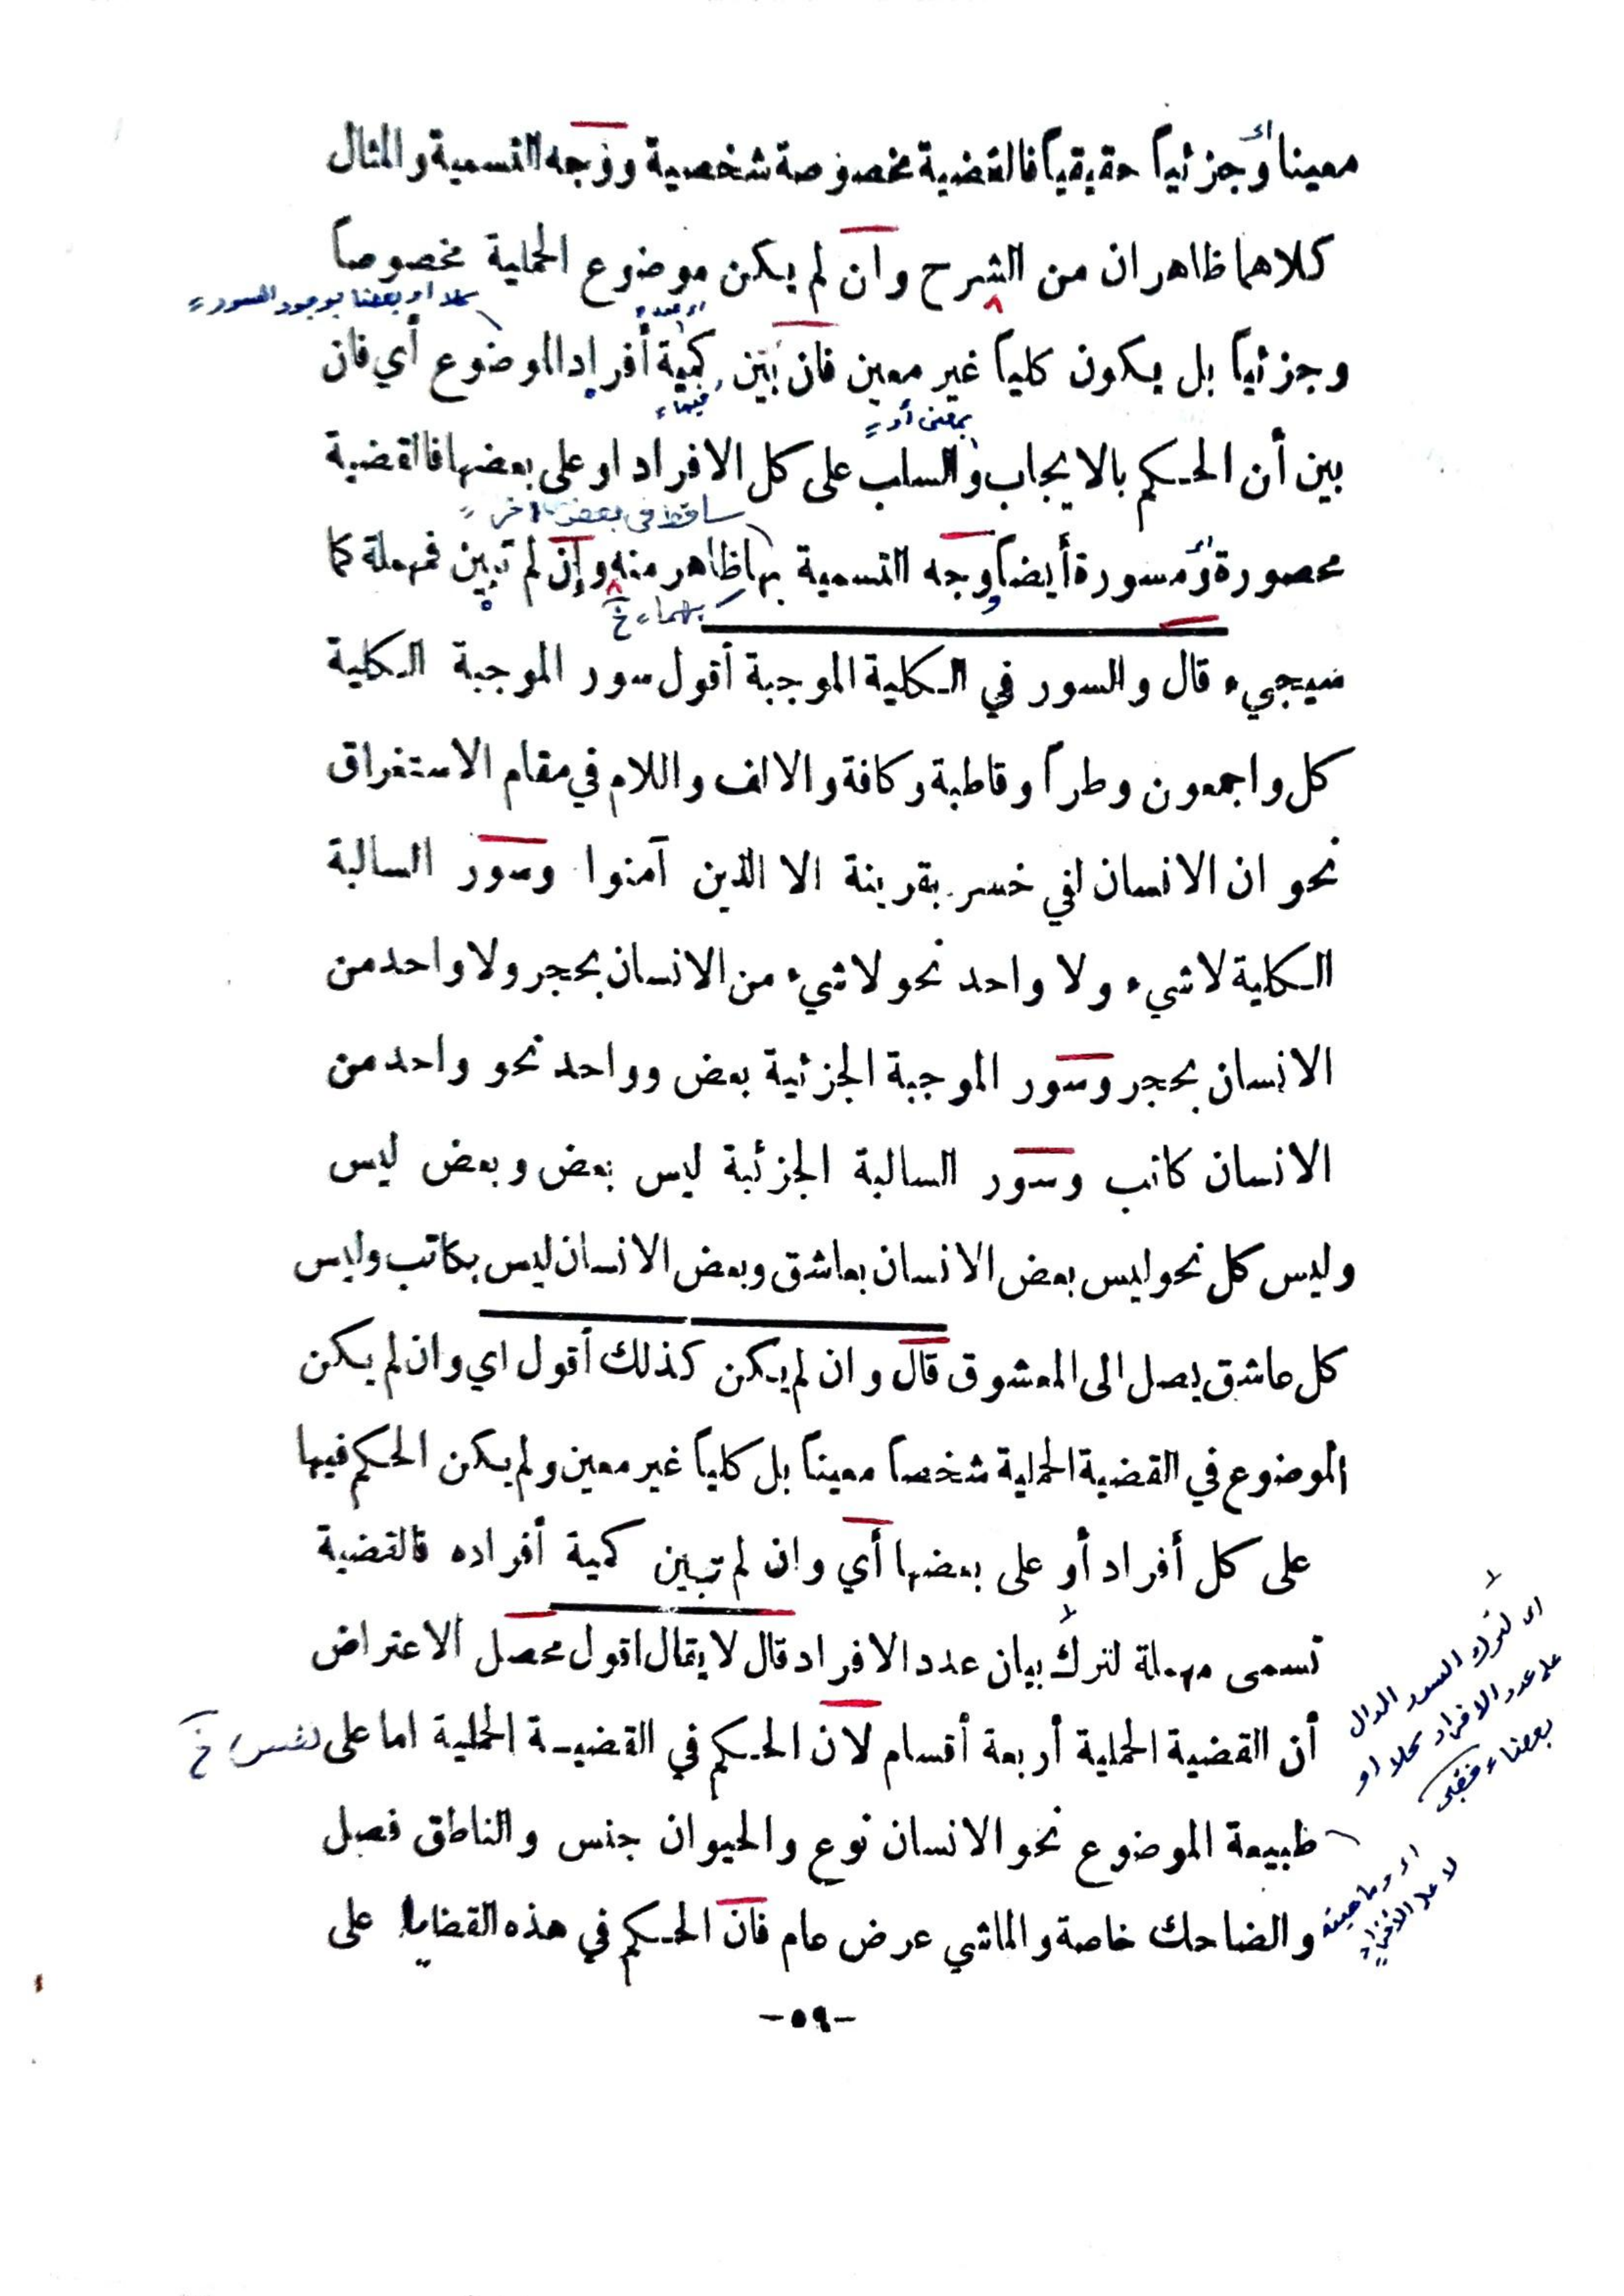 معينا وجزئياً حقيقياً فالقضية مخصوصة شخصية ووجه التسمية والمثال
كلاهما ظاهران من الشرح وان لم يكن موضوع الحملية مخصوصاً
كلا او بعضا بوجود السور
وجزئياً بل يكون كلياً غير معين فان بين كمية أفراد الموضوع أي فان
فيها
بمعنى أو
بين أن الحكم بالايجاب والسلب على كل الافراد او على بعضها فالقضية
ساقط في بعض آخر
محصورة ومسورة أيضاً وجه التسمية بها ظاهر منه وإن لم تبين فمهملة كما
بهما خ
سيجيء قال والسور في الكلية الموجبة أقول سور الموجبة الكلية
كل واجمعون وطراً وقاطبة وكافة والالف واللام في مقام الاستغراق
نحو ان الانسان لفي خسر بقرينة الا الذين آمنوا وسور السالبة
الكلية لا شيء ولا واحد نحو لا شيء من الانسان بحجر ولا واحد من
الانسان بحجر وسور الموجبة الجزئية بعض وواحد نحو واحد من
الانسان كاتب وسور السالبة الجزئية ليس بعض وبعض ليس
وليس كل نحو ليس بعض الانسان بعاشق وبعض الانسان ليس بكاتب وليس
كل عاشق يصل الى المعشوق قال وان لم يكن كذلك أقول اي وان لم يكن
الموضوع في القضية الحملية شخصاً معيناً بل كلياً غير معين ولم يكن الحكم فيها
على كل أفراد أو على بعضها أي وان لم تبين كمية أفراده فالقضية
تسمى مهملة لترك بيان عدد الافراد قال لا يقال اقول محصل الاعتراض
اى لترك السور الدال
على عدد الافراد كلا او
بعضا
أن القضية الحملية أربعة أقسام لان الحكم في القضية الحملية اما على نفس خ
طبيعة الموضوع نحو الانسان نوع والحيوان جنس والناطق فصل
اى وماهيته
لا على الافراد
والضاحك خاصة والماشي عرض عام فان الحكم في هذه القضايا على
-٥٩-